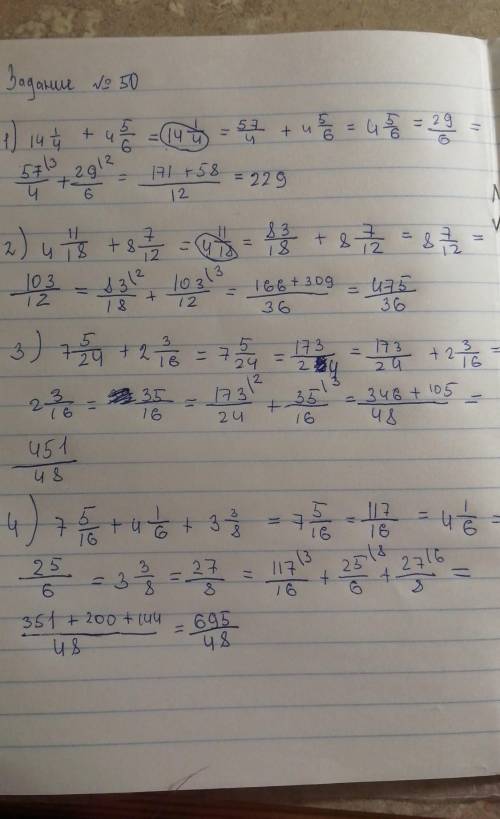 Задание № 50
1) 14 1/4 + 4 5/6 = 14 1/4 = 57/4 + 4 5/6 = 4 5/6 = 29/6 =
57\3/4 + 29\2/6 = 171 + 58/12 = 229
2) 4 11/18 + 8 7/12 = 4 11/18 = 83/18 + 8 7/12 = 8 7/12 =
103/12 = 83\2/18 + 103\3/12 = 166 + 309/36 = 475/36
3) 7 5/24 + 2 3/16 = 7 5/24 = 173/24 = 173/24 + 2 3/16 =
2 3/16 = 35/16 = 173\2/24 + 35\3/16 = 346 + 105/48 =
451/48
4) 7 5/16 + 4 1/6 + 3 3/8 = 7 5/16 = 117/16 = 4 1/6 =
25/6 = 3 3/8 = 27/8 = 117\3/16 + 25\8/6 + 27\6/8 =
351 + 200 + 144/48 = 695/48